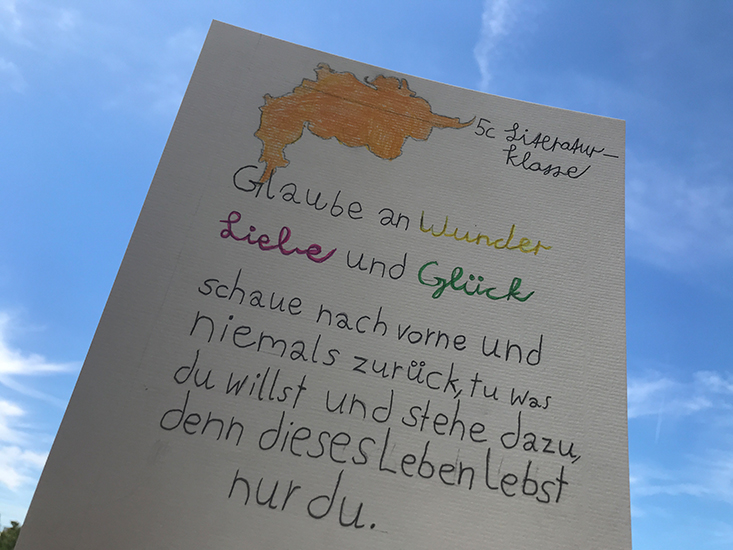 5c Literatur-
klasse
Glaube an Wunder
Liebe und Glück
schaue nach vorne und
niemals zurück, tu was
du willst und stehe dazu,
denn dieses Leben lebst
nur du.